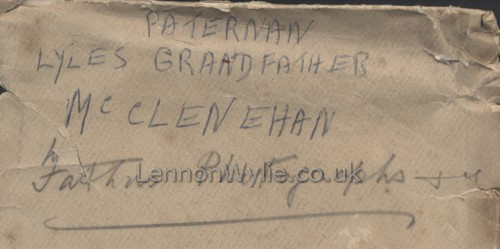 PATERNAN
LYLES GRANDFATHER
Mc CLENEHAN
Fathers Photographs
LennonWylie.co.uk